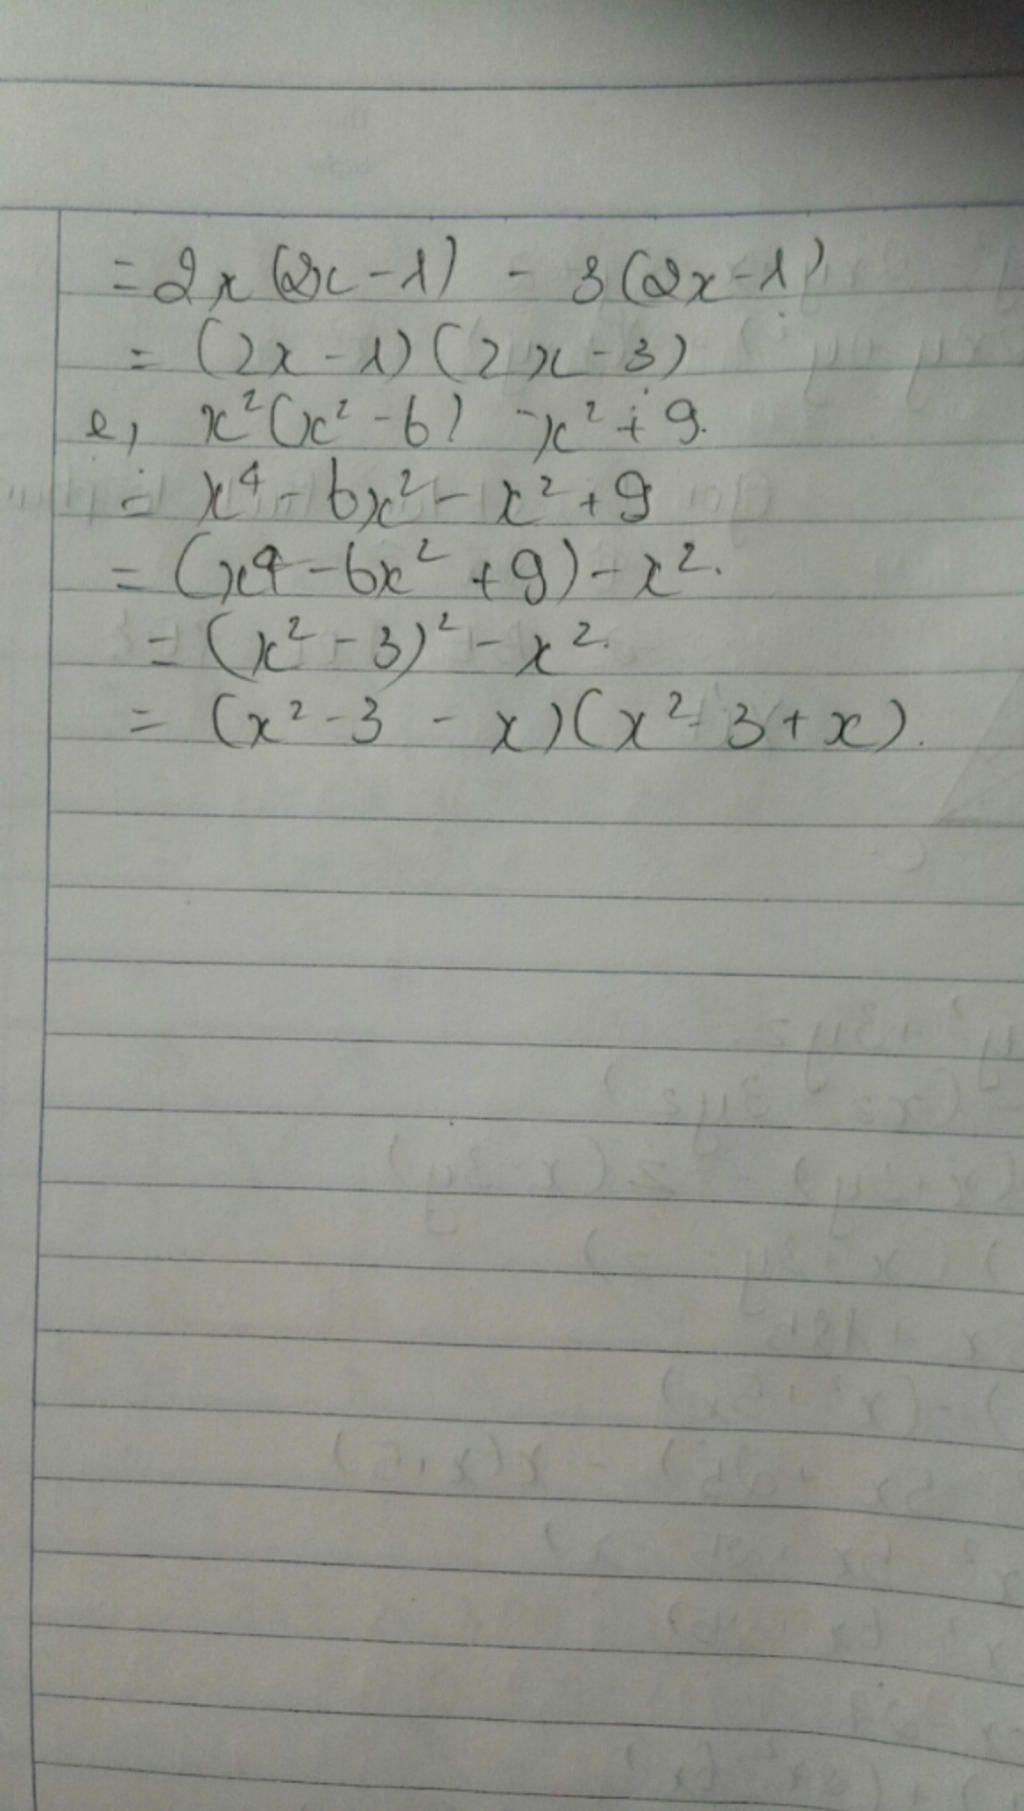 = 2x (2x - 1) - 3 (2x - 1)
= (2x - 1) (2x - 3)
e, x² (x² - 6) - x² + 9.
= x⁴ - 6x² - x² + 9
= (x⁴ - 6x² + 9) - x².
= (x² - 3)² - x².
= (x² - 3 - x) (x² - 3 + x).